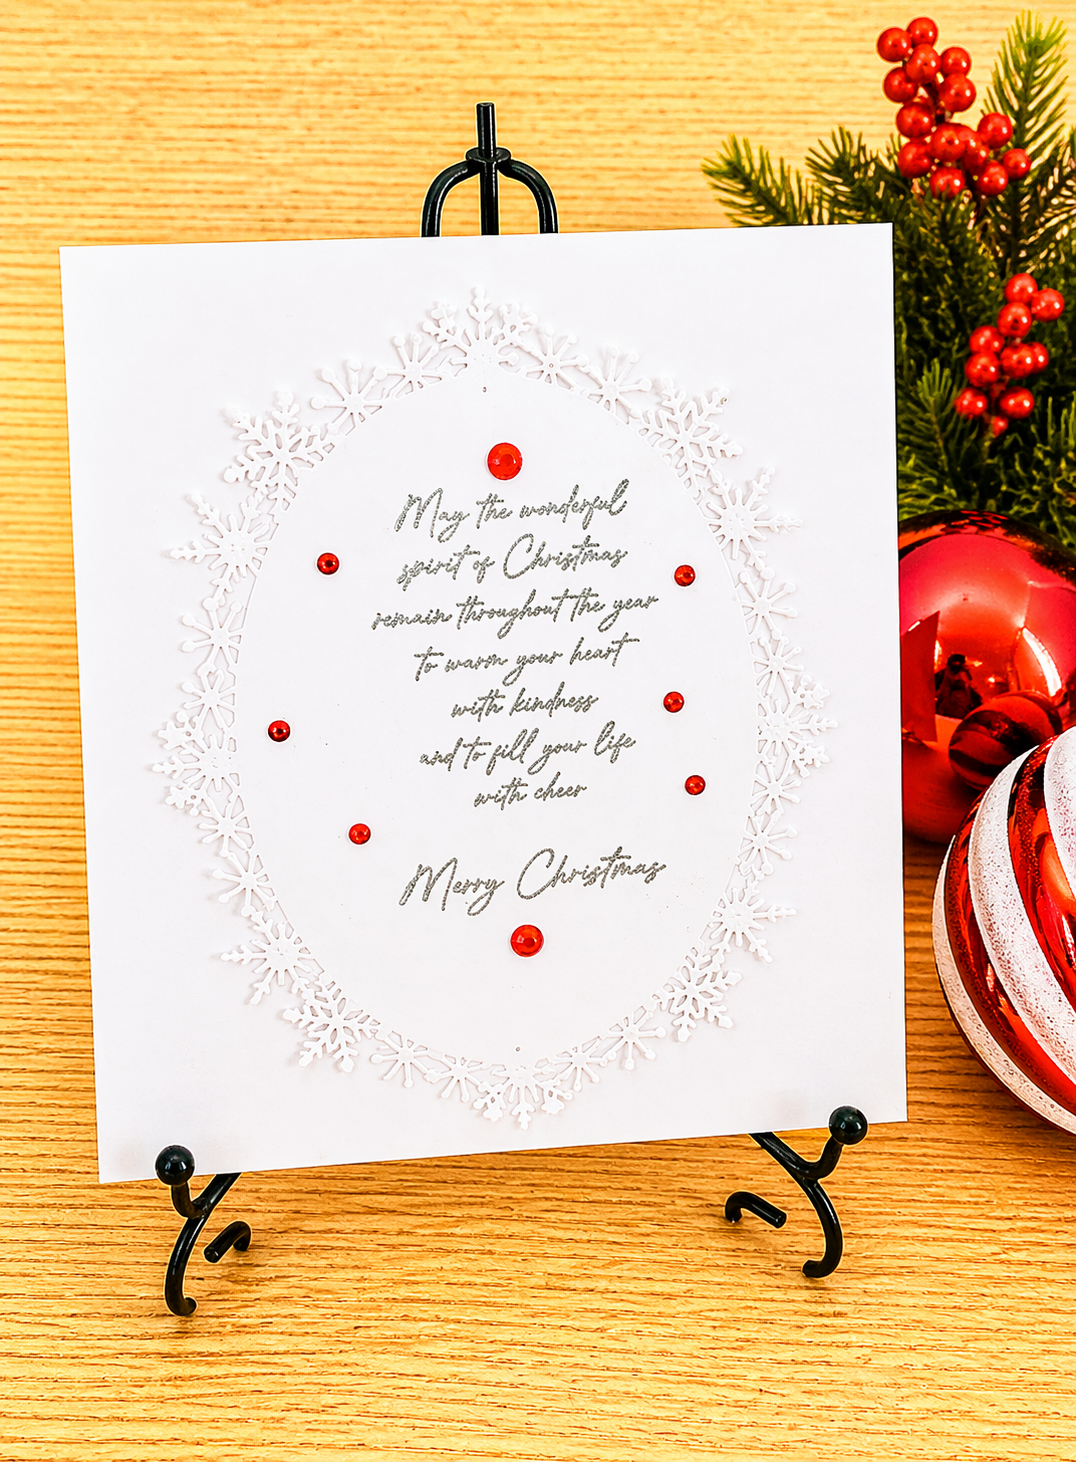 May the wonderful
spirit of Christmas
remain throughout the year
to warm your heart
with kindness
and to fill your life
with cheer
Merry Christmas